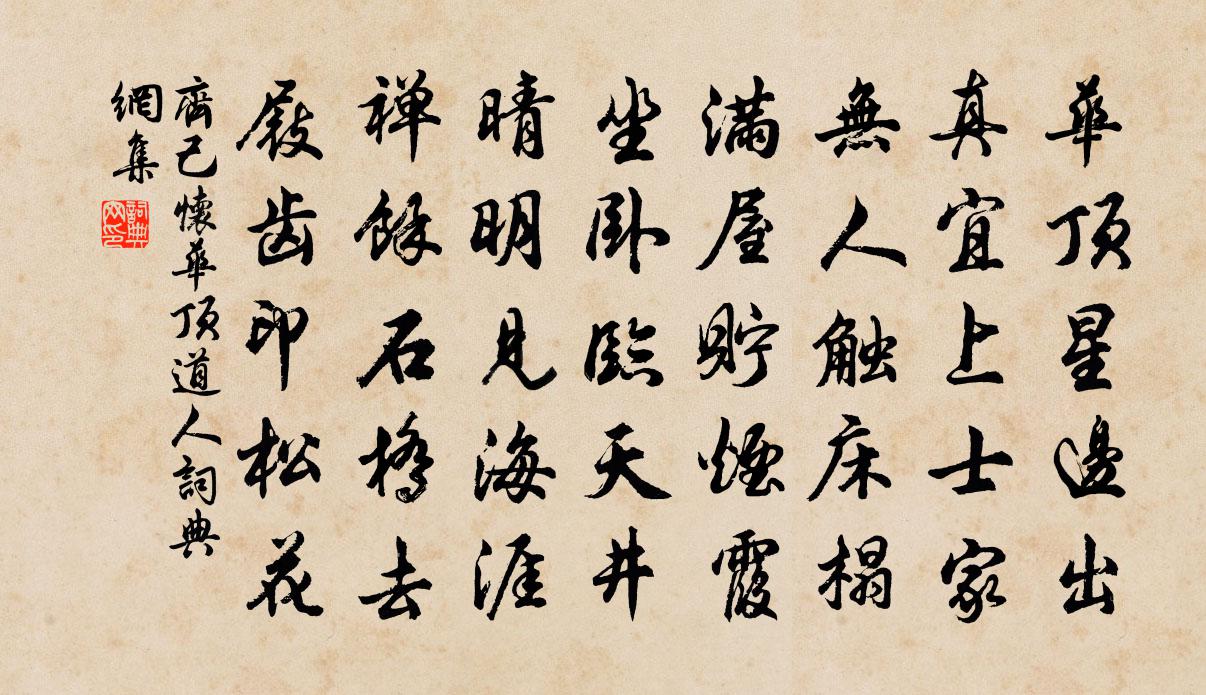 華頂星邊出
真宜上士家
無人觸床榻
滿屋貯煙霞
坐卧臨天井
晴明見海涯
禅餘石橋去
屐齒印松花
齊己懷華頂道人詞典
網集
詞典
网印